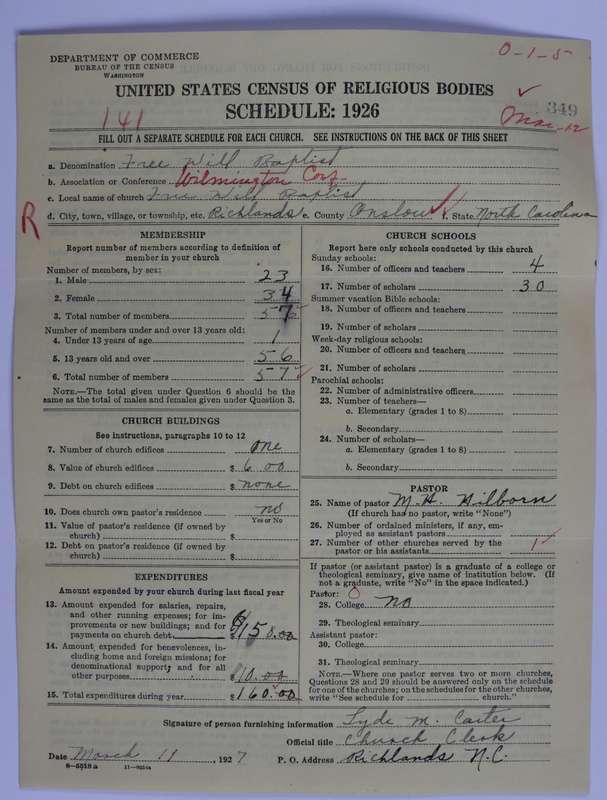 DEPARTMENT OF COMMERCE
BUREAU OF THE CENSUS
WASHINGTON
0-1-5
UNITED STATES CENSUS OF RELIGIOUS BODIES
SCHEDULE: 1926
141
349
FILL OUT A SEPARATE SCHEDULE FOR EACH CHURCH. SEE INSTRUCTIONS ON THE BACK OF THIS SHEET
a. Denomination Free Will Baptist
b. Association or Conference Wilmington Conf.
c. Local name of church Free Will Baptist
d. City, town, village, or township, etc. Richlands e. County Onslow f. State North Carolina
R
MEMBERSHIP
Report number of members according to definition of member in your church
Number of members, by sex:
1. Male 23
2. Female 34
3. Total number of members 57
Number of members under and over 13 years old:
4. Under 13 years of age 1
5. 13 years old and over 56
6. Total number of members 57
NOTE.—The total given under Question 6 should be the same as the total of males and females given under Question 3.
CHURCH BUILDINGS
See instructions, paragraphs 10 to 12
7. Number of church edifices one
8. Value of church edifices $ 600
9. Debt on church edifices $ none
10. Does church own pastor's residence no
Yes or No
11. Value of pastor's residence (if owned by church) $
12. Debt on pastor's residence (if owned by church) $
EXPENDITURES
Amount expended by your church during last fiscal year
13. Amount expended for salaries, repairs, and other running expenses; for improvements or new buildings; and for payments on church debt $150.00
14. Amount expended for benevolences, including home and foreign missions; for denominational support; and for all other purposes $10.00
15. Total expenditures during year $160.00
CHURCH SCHOOLS
Report here only schools conducted by this church
Sunday schools:
16. Number of officers and teachers 4
17. Number of scholars 30
Summer vacation Bible schools:
18. Number of officers and teachers
19. Number of scholars
Week-day religious schools:
20. Number of officers and teachers
21. Number of scholars
Parochial schools:
22. Number of administrative officers
23. Number of teachers—
a. Elementary (grades 1 to 8)
b. Secondary
24. Number of scholars—
a. Elementary (grades 1 to 8)
b. Secondary
PASTOR
25. Name of pastor M. H. Hilborn
(If church has no pastor, write "None")
26. Number of ordained ministers, if any, employed as assistant pastors
27. Number of other churches served by the pastor or his assistants 1
If pastor (or assistant pastor) is a graduate of a college or theological seminary, give name of institution below. (If not a graduate, write "No" in the space indicated.)
Pastor: 0
28. College no
29. Theological seminary
Assistant pastor:
30. College
31. Theological seminary
NOTE.—Where one pastor serves two or more churches, Questions 28 and 29 should be answered only on the schedule for one of the churches; on the schedules for the other churches, write "See schedule for church."
Signature of person furnishing information Lyde M. Carter
Official title Church Clerk
Date March 11, 1927
P. O. Address Richlands N.C.
8—5518 a 11—9054a